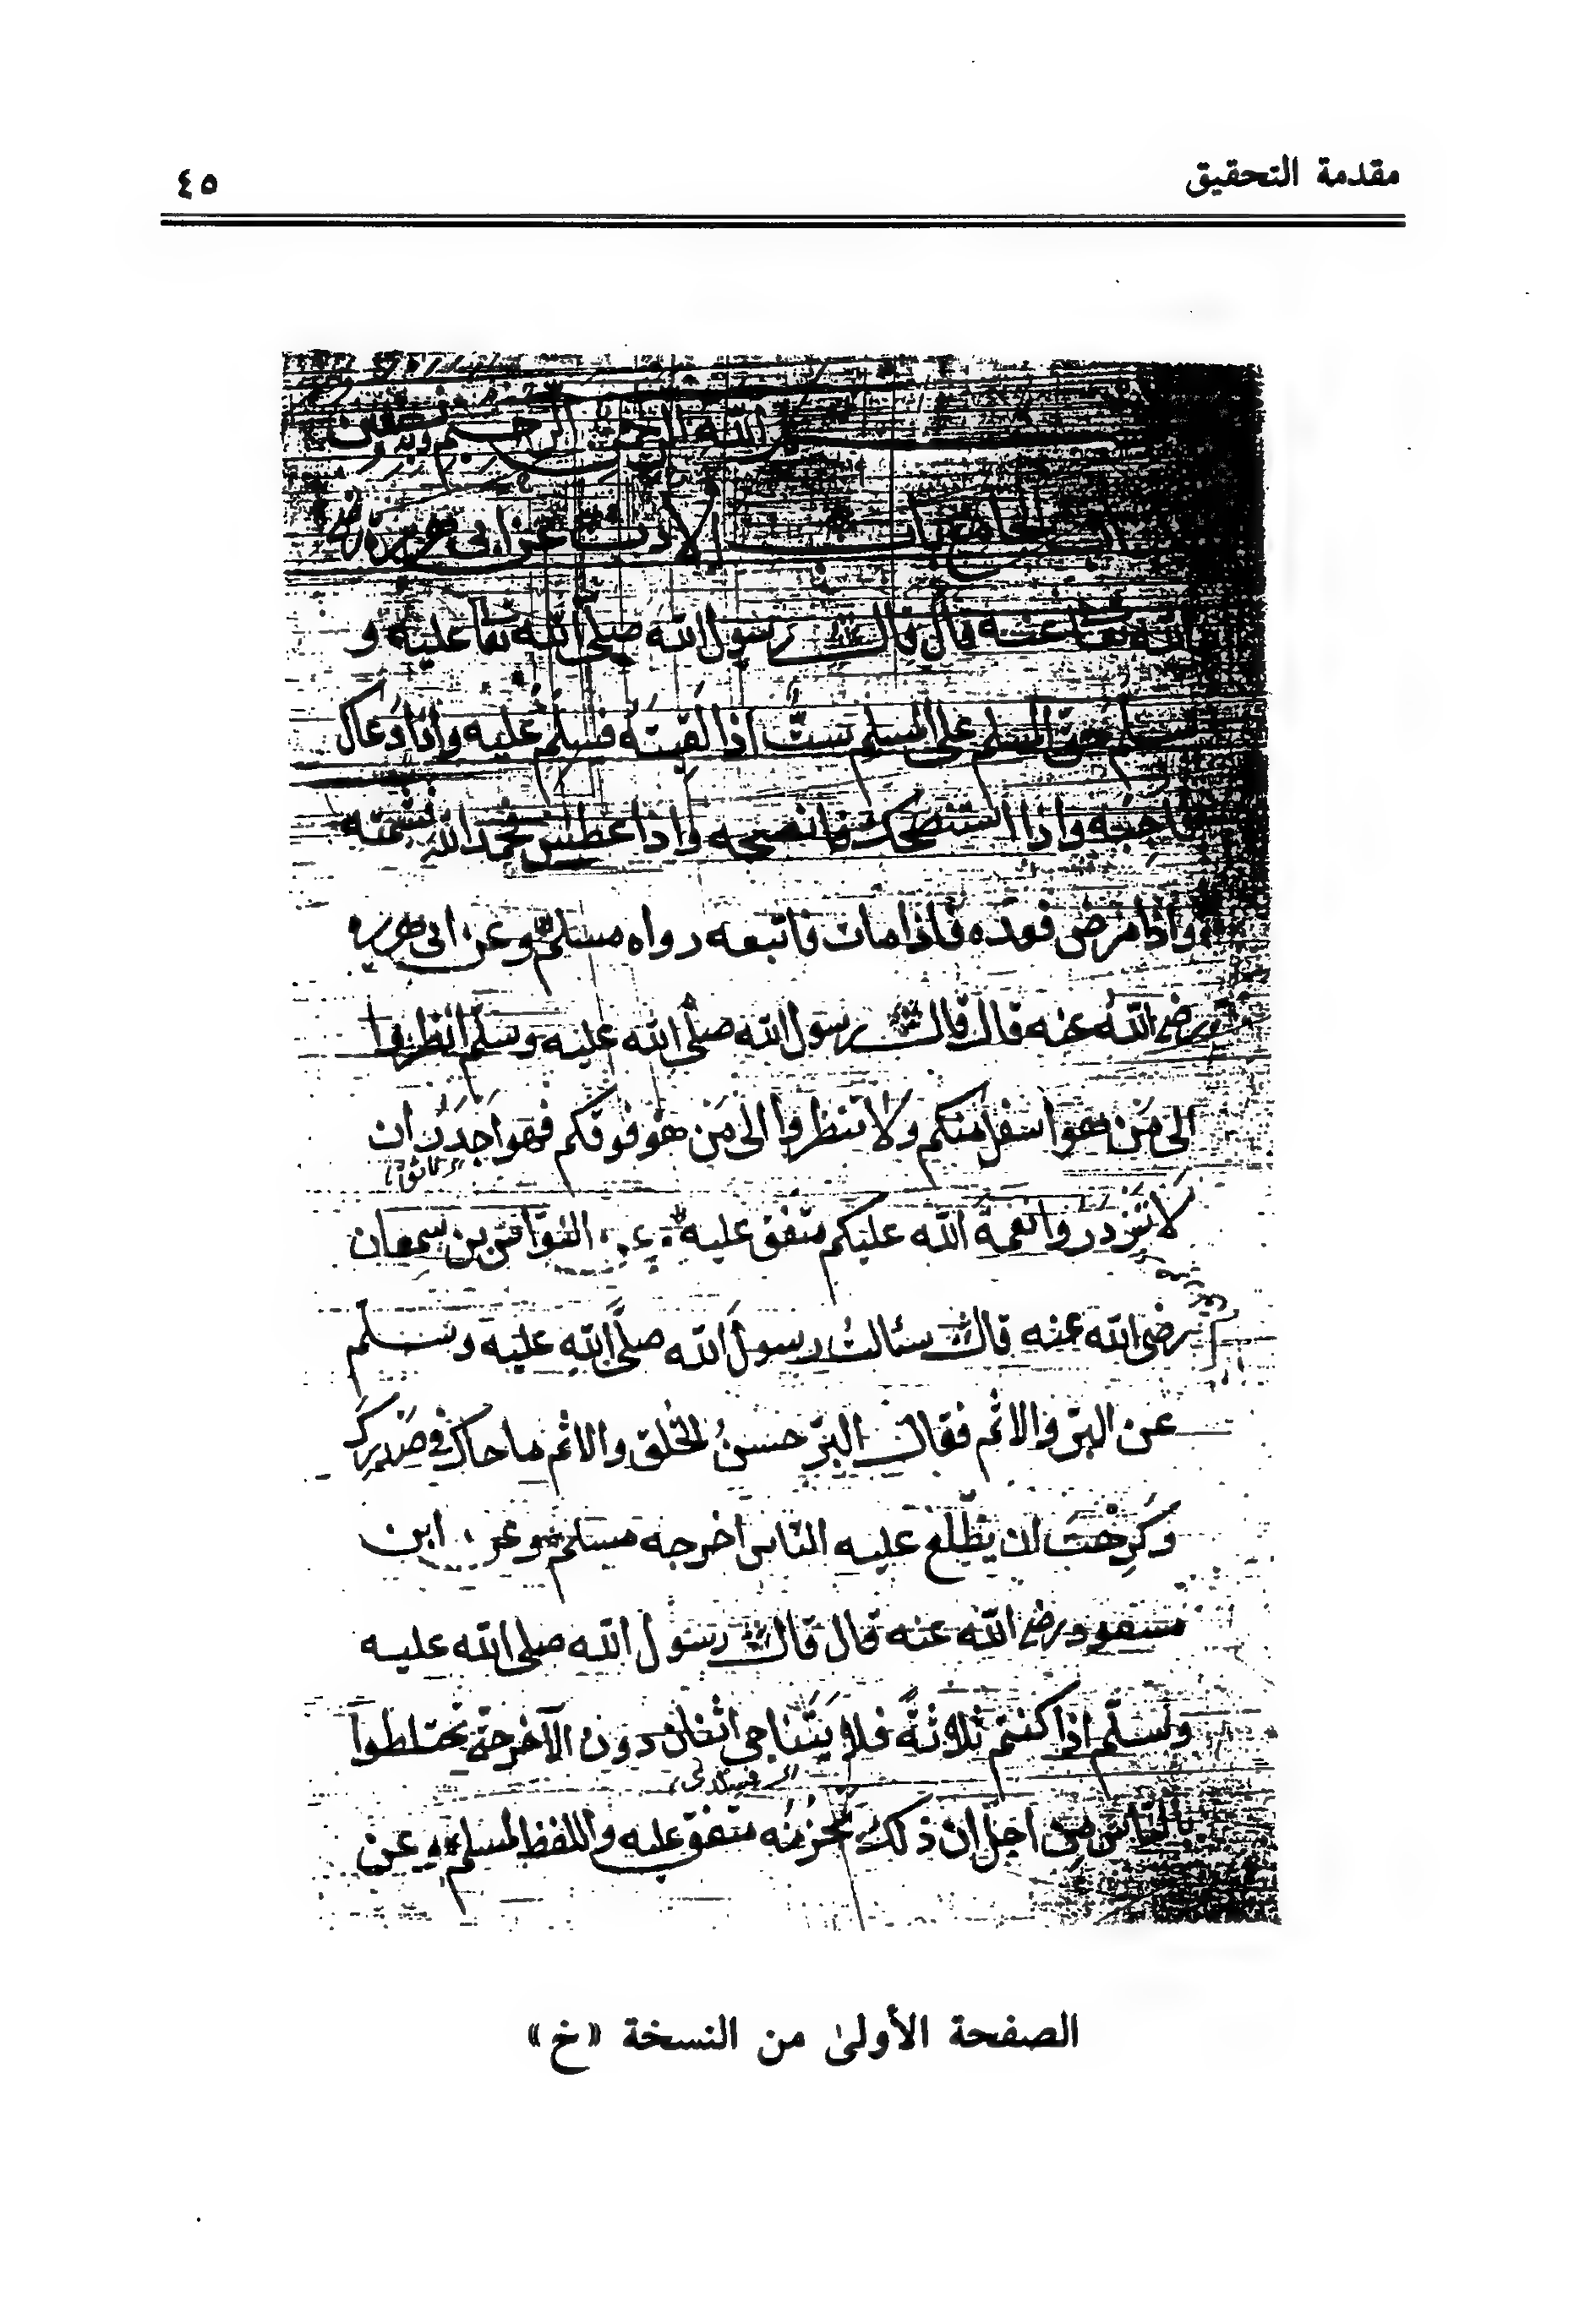 مقدمة التحقيق
٤٥
الله الرحمن الرحيم وبه نستعين
الجامع باب الادب عن ابى هريرة رضى
الله تعالى عنه قال قال رسول الله صلى الله تعالى عليه و
سلم حق المسلم على المسلم ست اذا لقيته فسلم عليه واذا دعاك
فاجبه واذا استنصحك فانصحه واذا عطس فحمد الله فشمته
واذا مرض فعده فاذا مات فاتبعه رواه مسلم وعن ابى هريره
رضى الله عنه قال قال رسول الله صلى الله عليه وسلم انظروا
الى من هو اسفل منكم ولا تنظروا الى من هو فوقكم فهو اجدر ان
لا تزدروا نعمة الله عليكم متفق عليه النواس بن سمعان
رضى الله عنه قال سئالت رسول الله صلى الله عليه وسلم
عن البرّ والاثم فقال البرّ حسنُ الخلق والاثم ما حاك فى صدرك
وكرهت ان يطّلع عليه الناس اخرجه مسلم وعن ابن
مسعود رضى الله عنه قال قال رسول الله صلى الله عليه
وسلّم اذا كنتم ثلاثةً فلا يتناجى اثنان دون الآخر حتى تختلطوا
بالناس من اجل ان ذلك يحزنه متفق عليه واللفظ لمسلم وعن
الصفحة الأولىٰ من النسخة «خ»